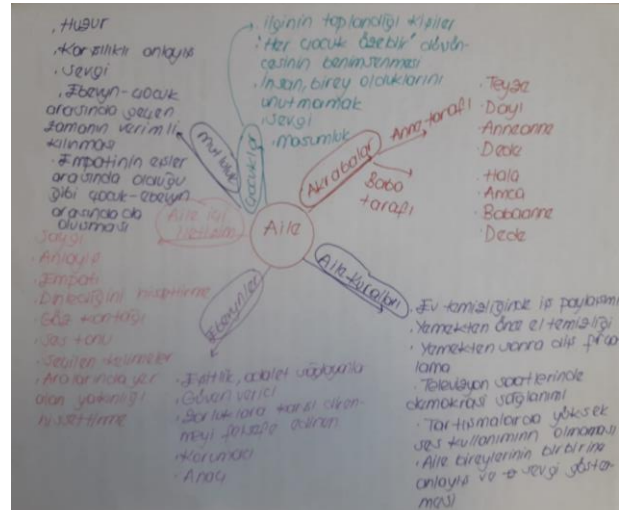 Aile
Mutluluk
· Huzur
· Karşılıklı anlayış
· Sevgi
· Ebevyn-çocuk
arasında geçen
zamanın verimli
kılınması
· Empatinin eşler
arasında olduğu
gibi çocuk-ebevyn
arasında da
oluşması
Çocuklar
· ilginin toplandığı kişiler
· "Her çocuk özeldir" düşün-
cesinin benimsenmesi
· İnsan, birey olduklarını
unutmamak
· Sevgi
· masumluk
Akrabalar
Anne tarafı
· Teyze
· Dayı
· Anneanne
· Dede
Baba
tarafı
· Hala
· Amca
· Babaanne
· Dede
Aile Kuralları
· Ev temizliğinde iş paylaşımı
· Yemekten önce el temizliği
· Yemekten sonra diş fırça
lama
· Televizyon saatlerinde
demokrasi sağlanımı
· Tartışmalarda yüksek
ses kullanımının olmaması
· Aile bireylerinin birbirine
anlayış ve sevgi göster-
mesi
Ebevynler
· Eşitlik, adalet sağlayıcıla
· Güven verici
· Zorluklara karşı diren-
meyi felsefe edinen
· Korumacı
· Anaç
Aile içi
iletişim
· Saygı
· Anlayış
· Empati
· Dinlediğini hissettirme
· Göz kontağı
· Ses tonu
· Seçilen kelimeler
· Aralarında yer
alan yakınlığı
hissettirme